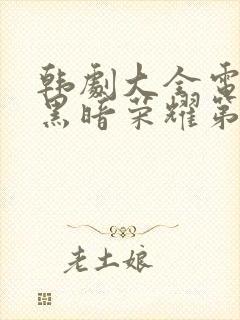 韩劇大全電
黑暗荣耀第
老土娘